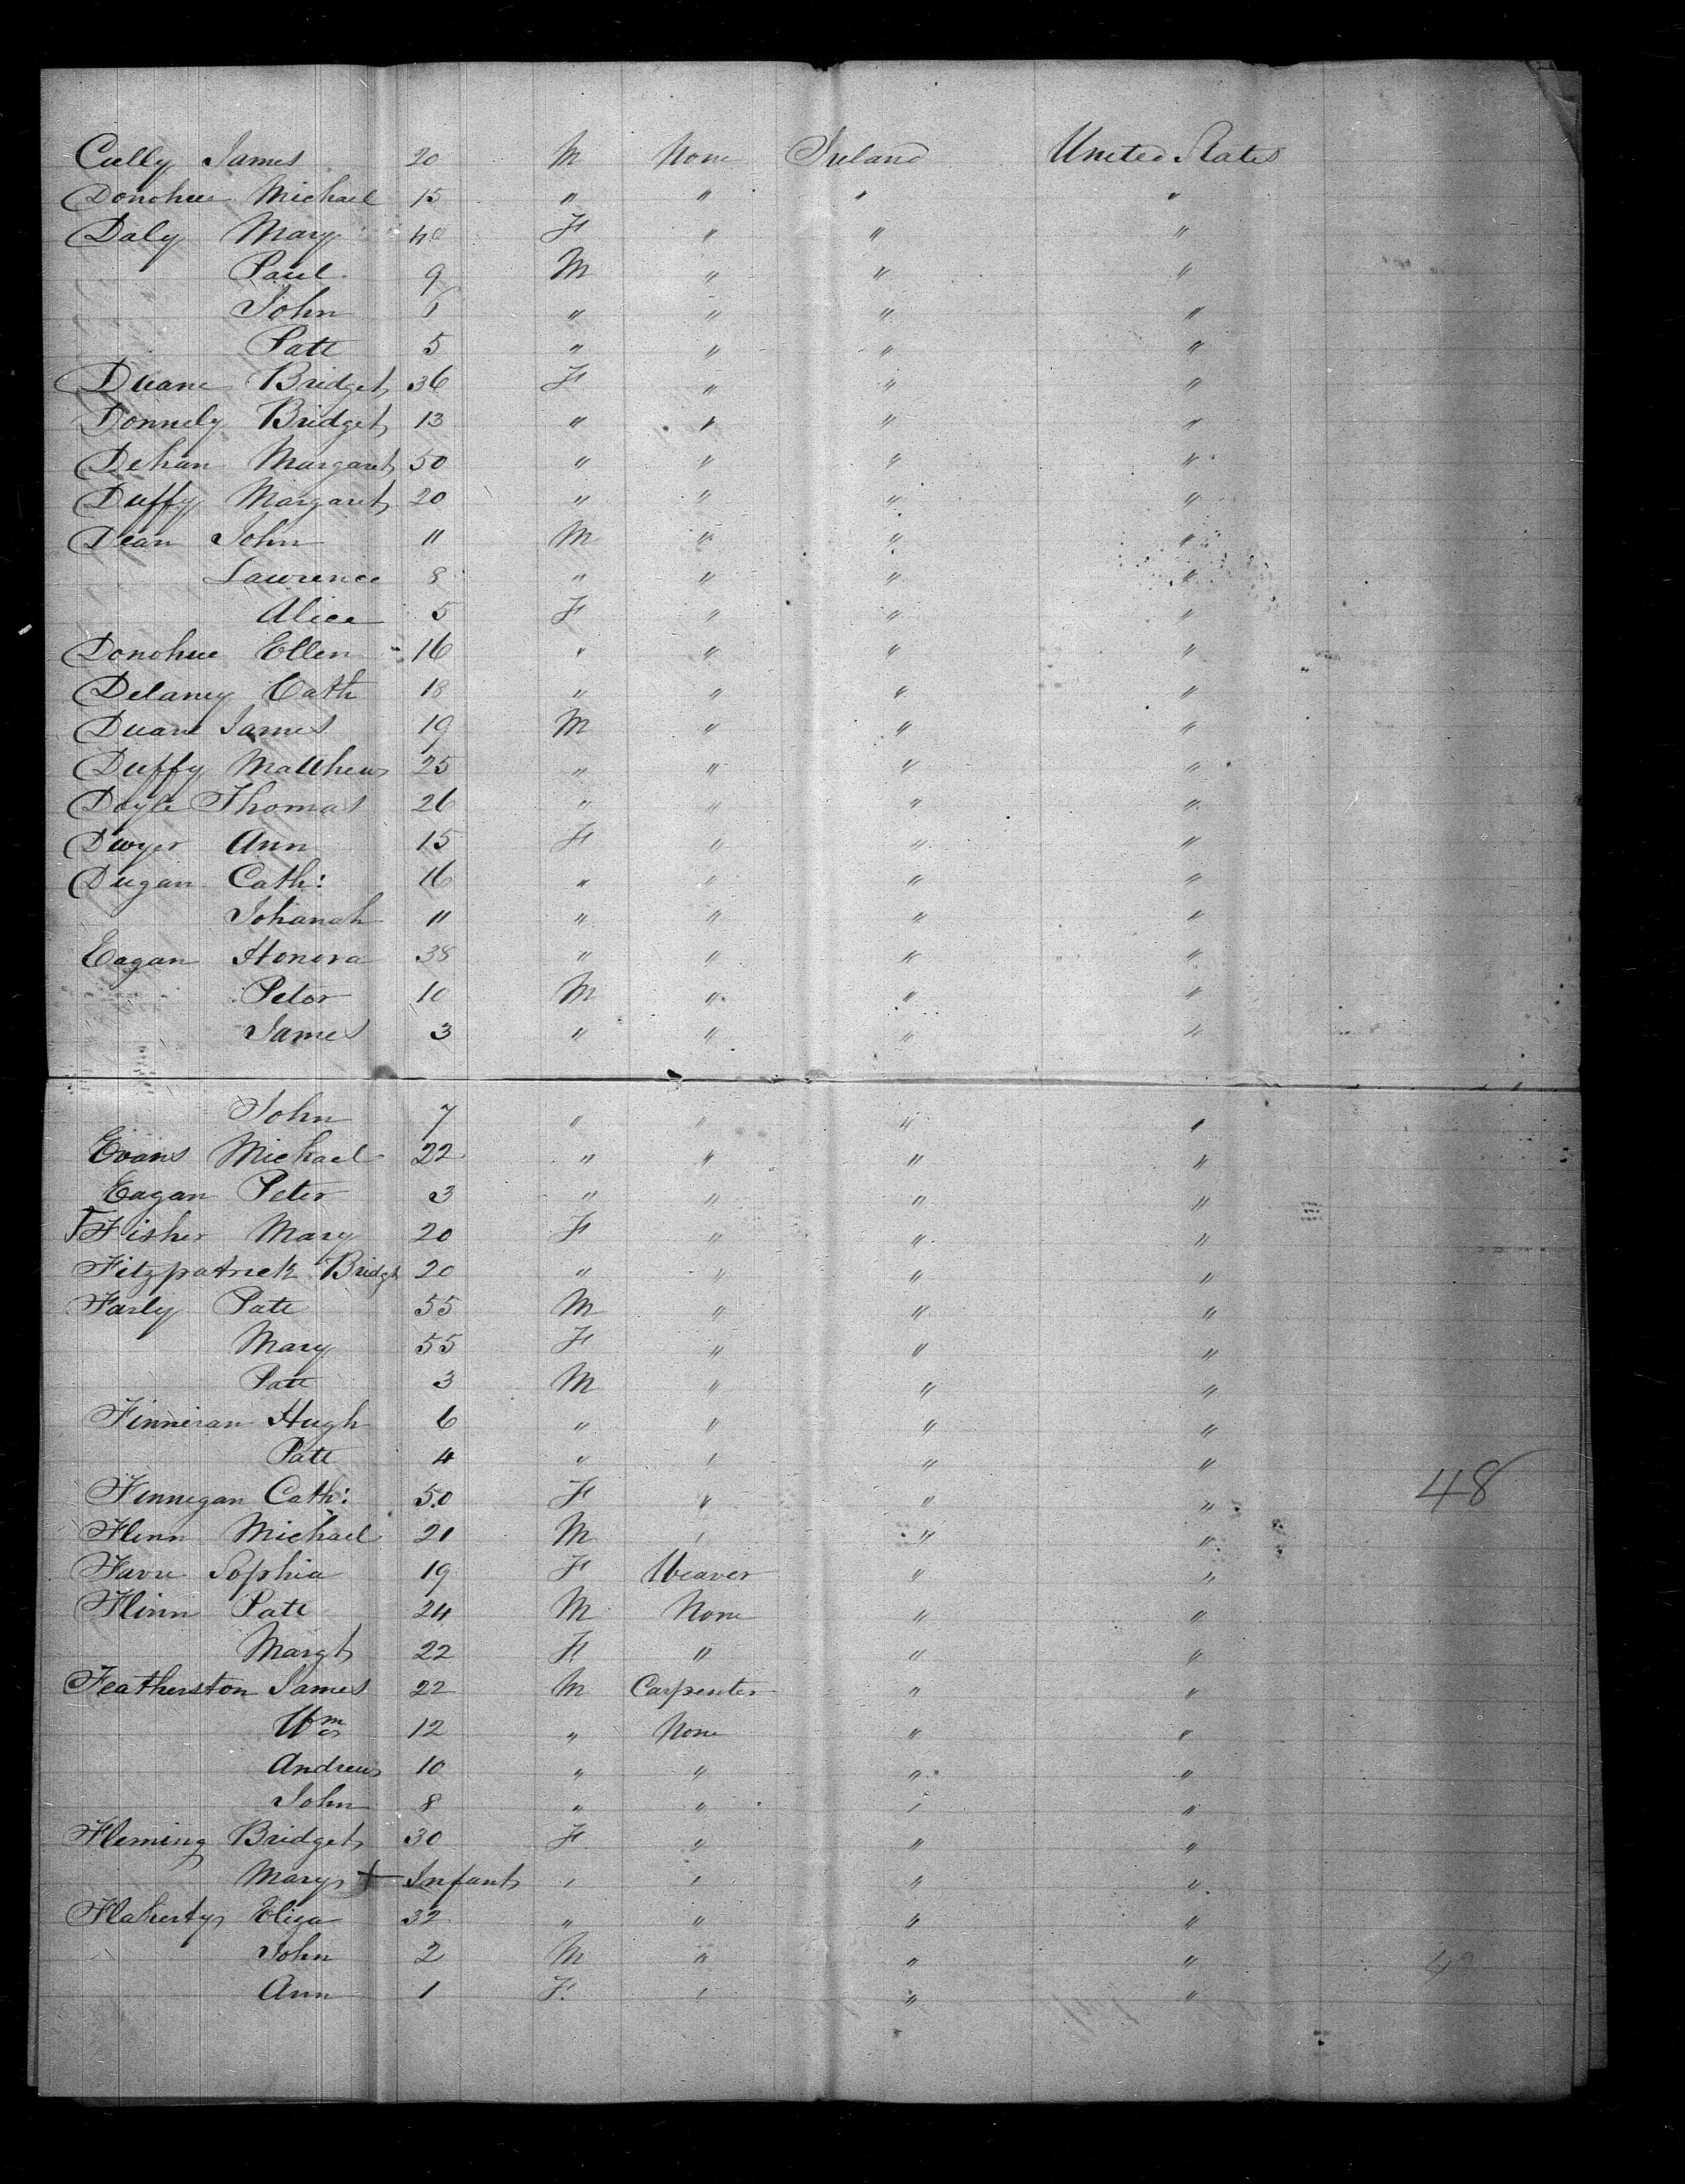 Cully James 20 M None Ireland United States
Donohue Michael 15 " " " "
Daly Mary 40 F " " "
Paul 9 M " " "
John 6 " " " "
Patt 5 " " " "
Duane Bridget 36 F " " "
Donnely Bridget 13 " " " "
Dehan Margaret 50 " " " "
Duffy Margaret 20 " " " "
Dean John 11 M " " "
Lawrence 8 " " " "
Alice 5 F " " "
Donohue Ellen 16 " " " "
Delaney Cath 18 " " " "
Duane James 19 M " " "
Duffy Matthew 25 " " " "
Doyle Thomas 26 " " " "
Dwyer Ann 15 F " " "
Dugan Cath: 16 " " " "
Johanah 11 " " " "
Eagan Honora 38 " " " "
Peter 10 M " " "
James 3 " " " "
John 7 " " " "
Evans Michael 22 " " " "
Eagan Peter 3 " " " "
Fisher Mary 20 F " " "
Fitzpatrick Bridgt 20 " " " "
Farly Patt 55 M " " "
Mary 55 F " " "
Patt 3 M " " "
Finneran Hugh 6 " " " "
Patt 4 " " " "
Finnegan Cath: 50 F " " " 48
Flinn Michael 21 M " " "
Favre Sophia 19 F Weaver " "
Flinn Patt 24 M None " "
Margt 22 F " " "
Featherston James 22 M Carpenter " "
Wm 12 " None " "
Andrew 10 " " " "
John 8 " " " "
Fleming Bridget 30 F " " "
Mary + Infant " " " "
Flaherty Eliza 32 " " " "
John 2 M " " "
Ann 1 F. " " "